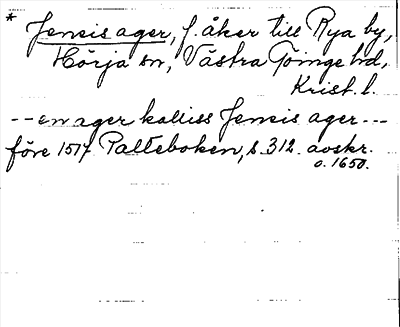 * Jensis ager, f. åker till Rya by,
Hörja sn, Västra Göinge hd,
Krist. l.
-- en ager kalliss Jensis ager ---
före 1517 Palteboken, s. 312. avskr.
o. 1650.